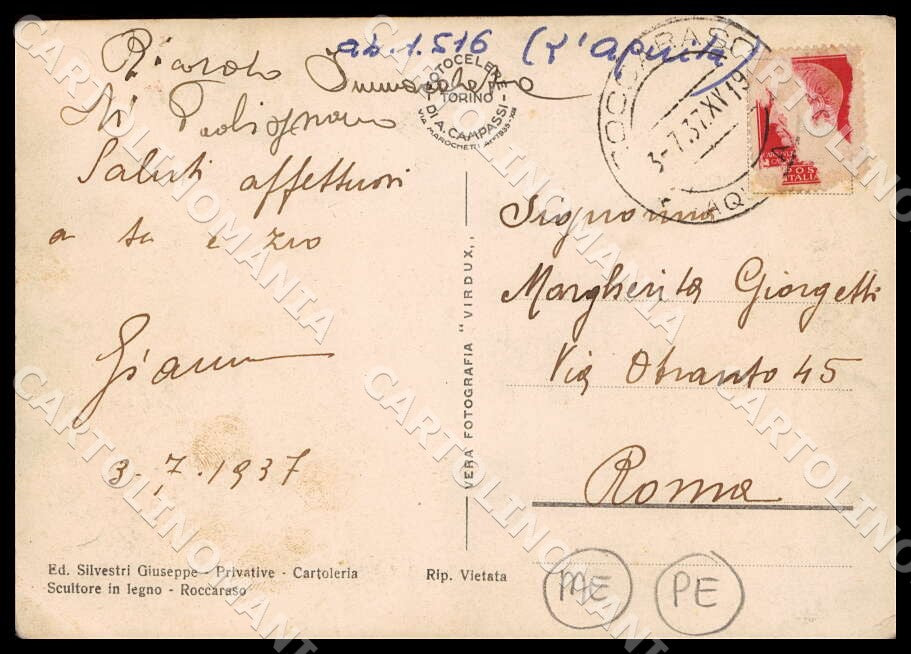 ab. 1.516 (L'Aquila)
Ricordo
di
Saluti affettuosi
a te e zio
Gianni
3-7.1937
Ed. Silvestri Giuseppe - Privative - Cartoleria
Scultore in legno - Roccaraso
Rip. Vietata
FOTOCELERE
DI A. CAMPASSI
TORINO
VERA FOTOGRAFIA "VIRDUX"
ROCCARASO
3-7.37.XV 19
AQUILA
POSTE
ITALIANE
Signorina
Margherita Giorgetti
Via Otranto 45
Roma
ME
PE
CARTOLINOMANIA